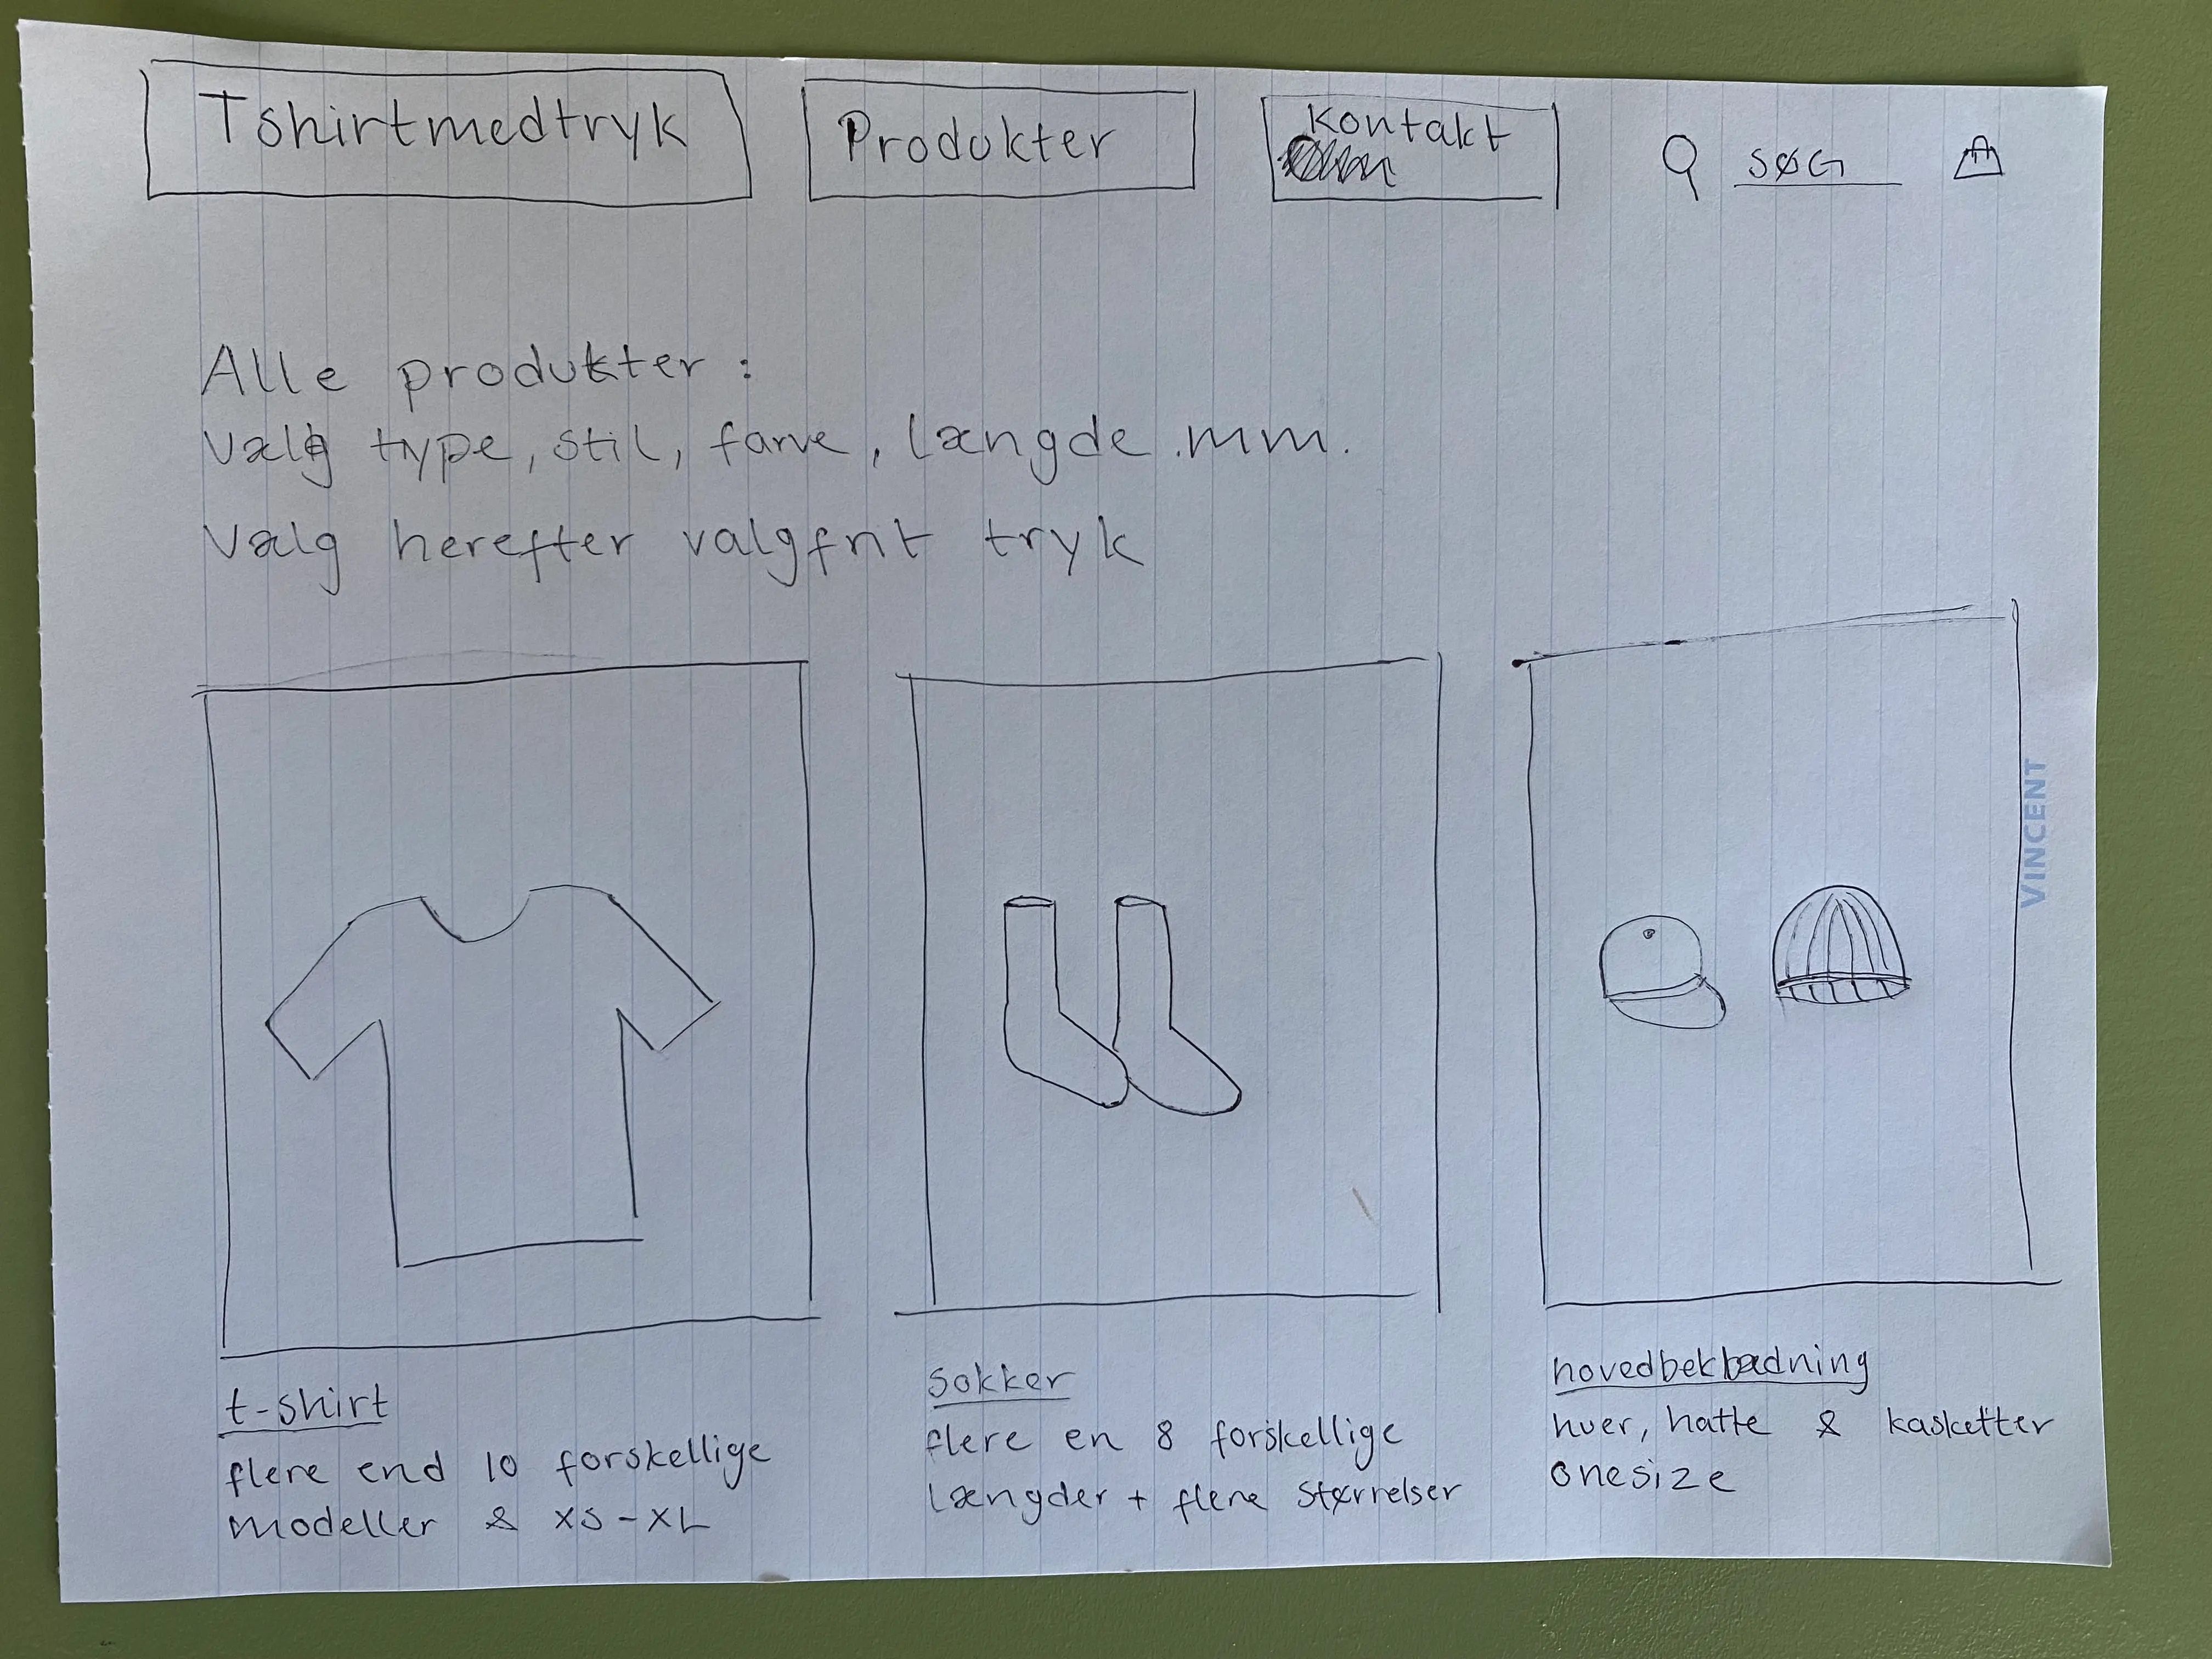 Tshirtmedtryk
Produkter
Kontakt
SØG
Alle produkter :
Vælg type, stil, farve, længde .mm.
Vælg herefter valgfrit tryk
VINCENT
t-shirt
flere end 10 forskellige
modeller & XS-XL
Sokker
flere en 8 forskellige
Længder + flere størrelser
hovedbeklædning
huer, hatte & kasketter
onesize